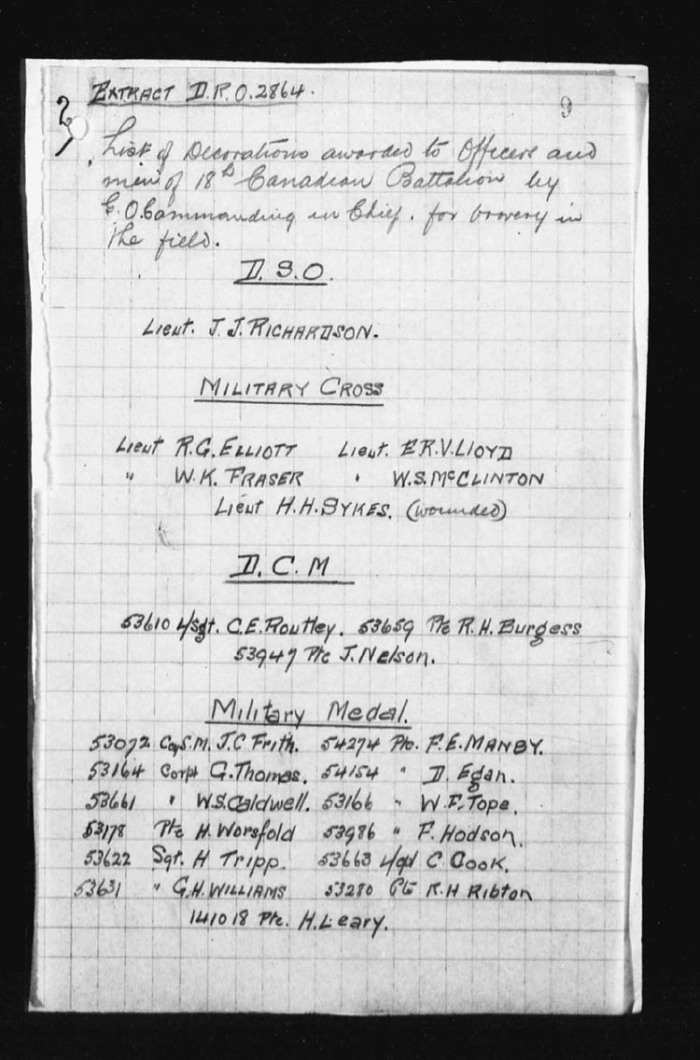 EXTRACT D.R.O. 2864.
2
9
List of Decorations awarded to Officers and
men of 18th Canadian Battalion by
G.O. Commanding in Chief. for bravery in
the field.
D.S.O.
Lieut. J.J. RICHARDSON.
MILITARY CROSS
Lieut R.G. ELLIOTT Lieut. E.R.V. LLOYD
" W.K. FRASER " W.S. McCLINTON
Lieut H.H. SYKES. (wounded)
D.C.M
53610 L/Sgt. C.E. Routley. 53659 Pte R.H. Burgess
53947 Pte J. Nelson.
Military Medal.
53072 Coy S.M. J.C Frith. 54274 Pte. F.E. MANBY.
53164 Corpl G. Thomas. 54154 " D. Egan.
53661 " W.S. Caldwell. 53166 " W.F. Tope.
53178 Pte H. Worsfold 53986 " F. Hodson.
53622 Sgt. H Tripp. 53663 C. Cook.
53631 " G.H. WILLIAMS 53280 Pte R.H Ribton
141018 Pte. H. Leary.